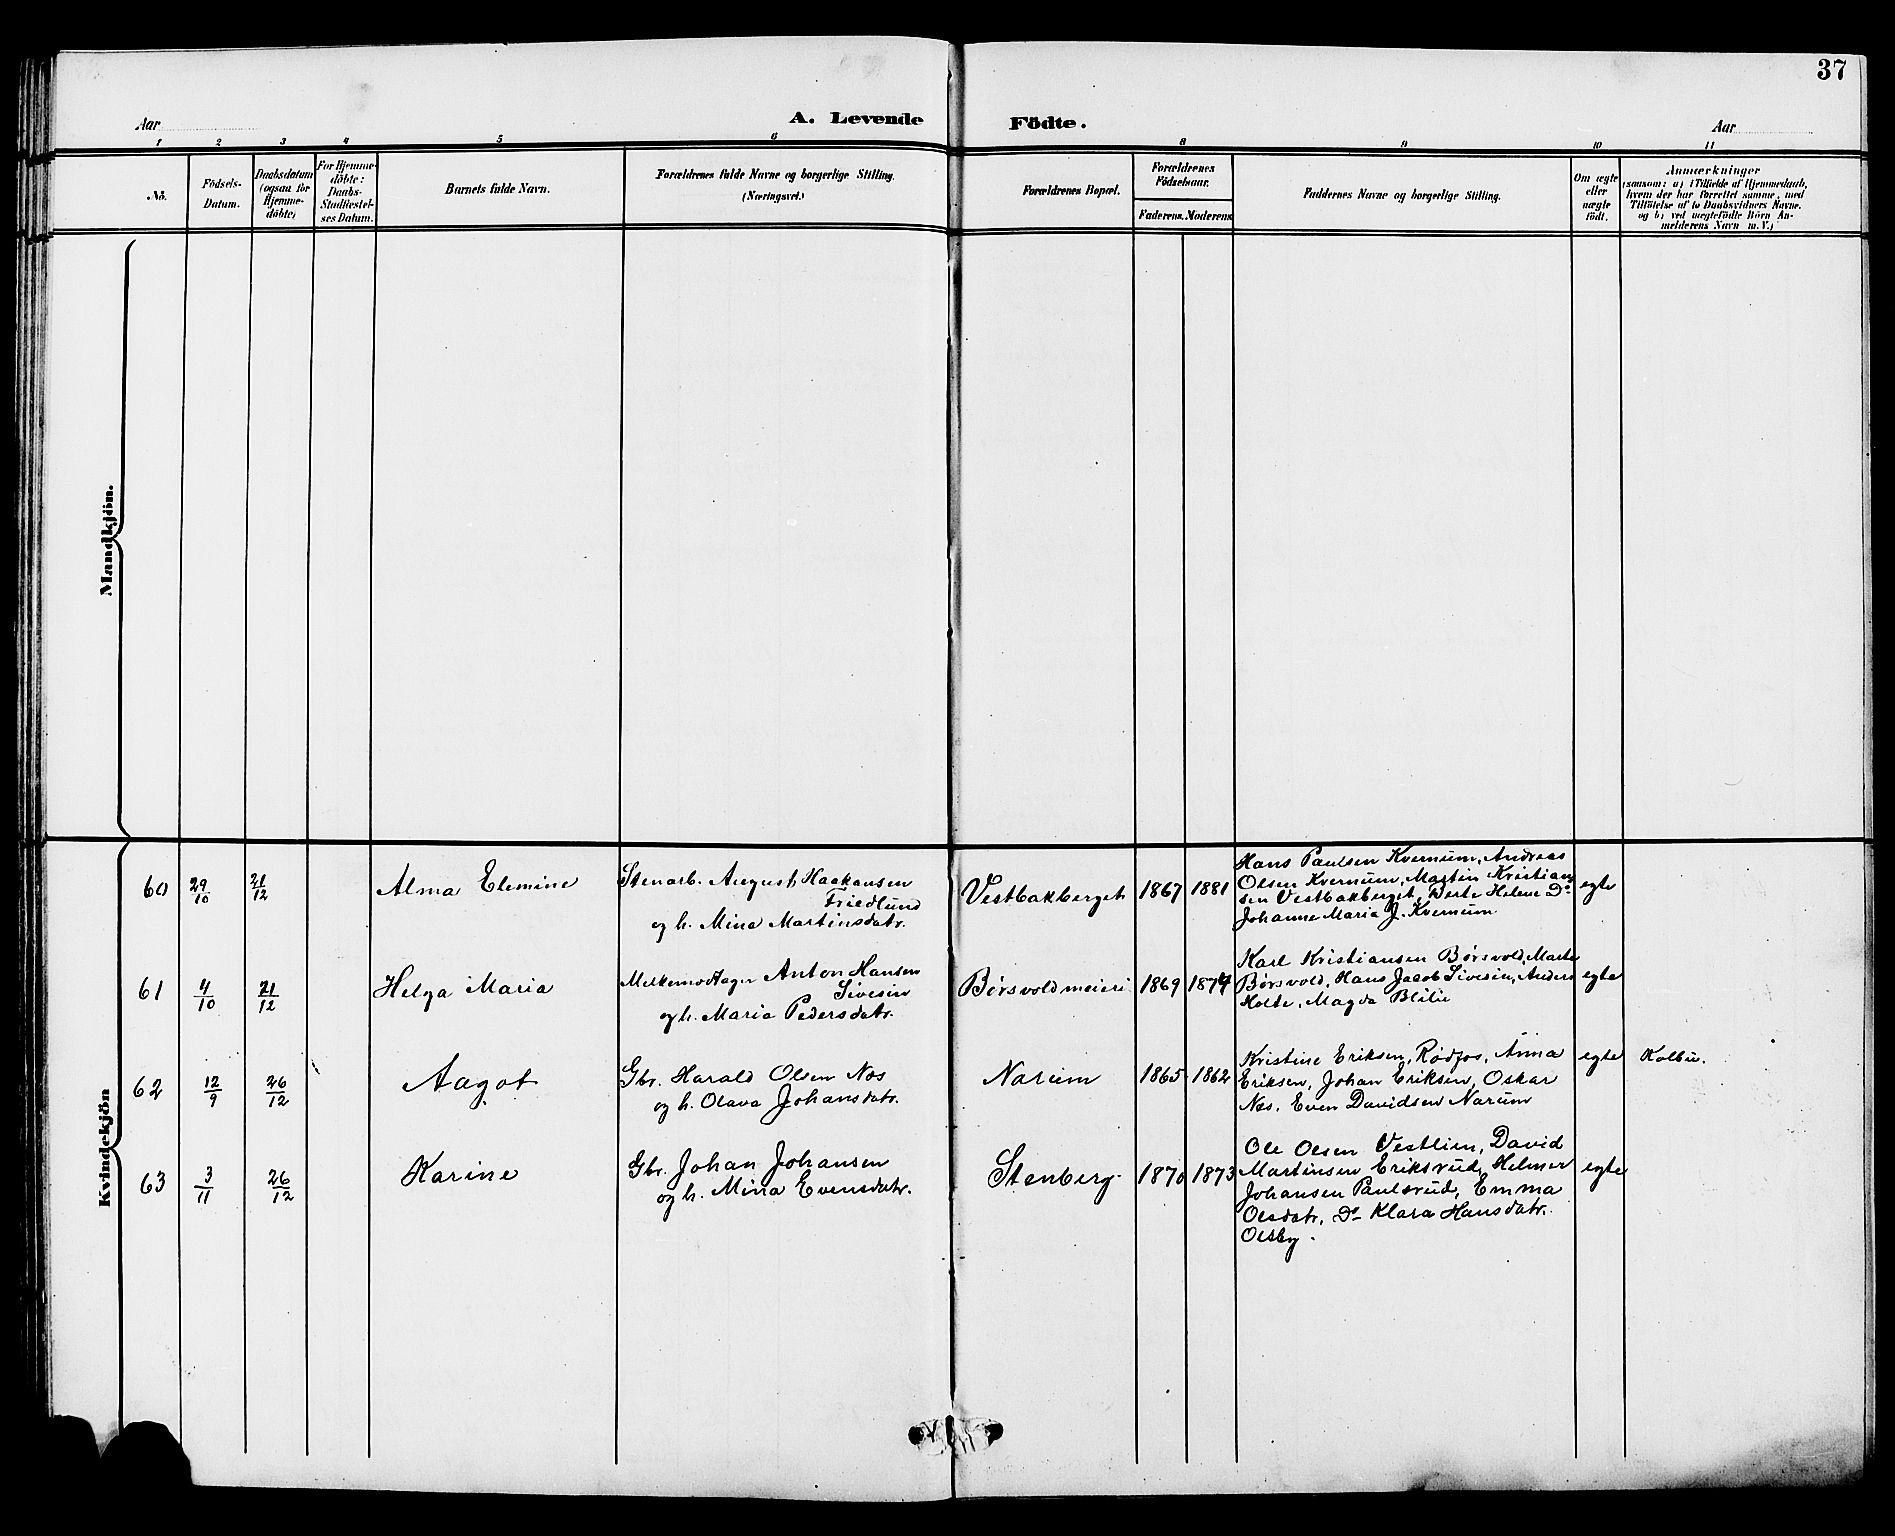 37
Aar
A. Levende Födte.
Aar
1 2 3 4 5 6 8 9 10 11
No.
Födsels-
Datum.
Daabsdatum
(ogsaa for
Hjemme-
döbte)
For Hjemme-
döbte:
Daabs-
Stadfæstel-
ses Datum.
Barnets fulde Navn.
Forældrenes fulde Navne og borgerlige Stilling.
(Næringsvei.)
Forældrenes Bopæl.
Forældrenes
Födselsaar.
Faderens. Moderens
Faddernes Navne og borgerlige Stilling.
Om ægte
eller
uægte
födt.
Anmærkninger
(saasom: a) i Tilfælde af Hjemmedaab,
hvem der har forrettet samme, med
Tilföielse af to Daabsvidners Navne.
og b) ved uægtefödte Börn An-
melderens Navn m.V.)
Mandkjön.
Kvindekjön
60 29/10 21/12 Alma Elemine
Stenarb. August Haakansen
Friedlund
og h. Mina Martinsdatr.
Vestbakberget 1867 1881
Hans Paulsen Kvernum, Andreas
Olsen Kvernum, Martin Kristian-
sen Vestbakberget, Berte Helene Do
Johanne Maria J. Kvernum
egte
61 4/10 21/12 Helga Maria
Melkemodtager Anton Hansen
Sivesin
og h. Maria Pedersdatr.
Børsvoldmeieri 1869 1874
Karl Kristiansen Børsvold, Marte
Børsvold, Hans Jacob Sivesin, Anders
Holte, Magda Blilie
egte
62 12/9 26/12 Aagot
Gbr. Harald Olsen Næs
og h. Olava Johansdatr.
Narum 1865 1862
Kristine Eriksen, Rødfos, Anna
Eriksen, Johan Eriksen, Oskar
Næs, Even Davidsen Narum
egte Kolbu.
63 3/11 26/12 Karine
Gbr. Johan Johansen
og h. Mina Evensdatr.
Stenberg 1870 1873
Ole Olsen Vestlien, David
Martinsen Eriksrud, Helmer
Johansen Paulsrud, Emma
Olsdatr. Do Klara Hansdatr.
Olsby.
egte